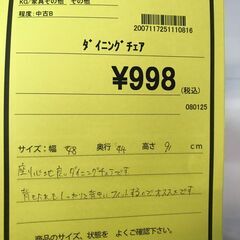 kg/家具その他 その他
程度:中古B
2007117251110816
ダイニングチェア
¥998
(税込)
080125
サイズ:幅 48 奥行 44 高さ 91 cm
座り心地良いダイニングチェアです
背もたれもしっかりと背中にフィットするのでオススメです
商品のサイズ、状態を よくご確認下さい。